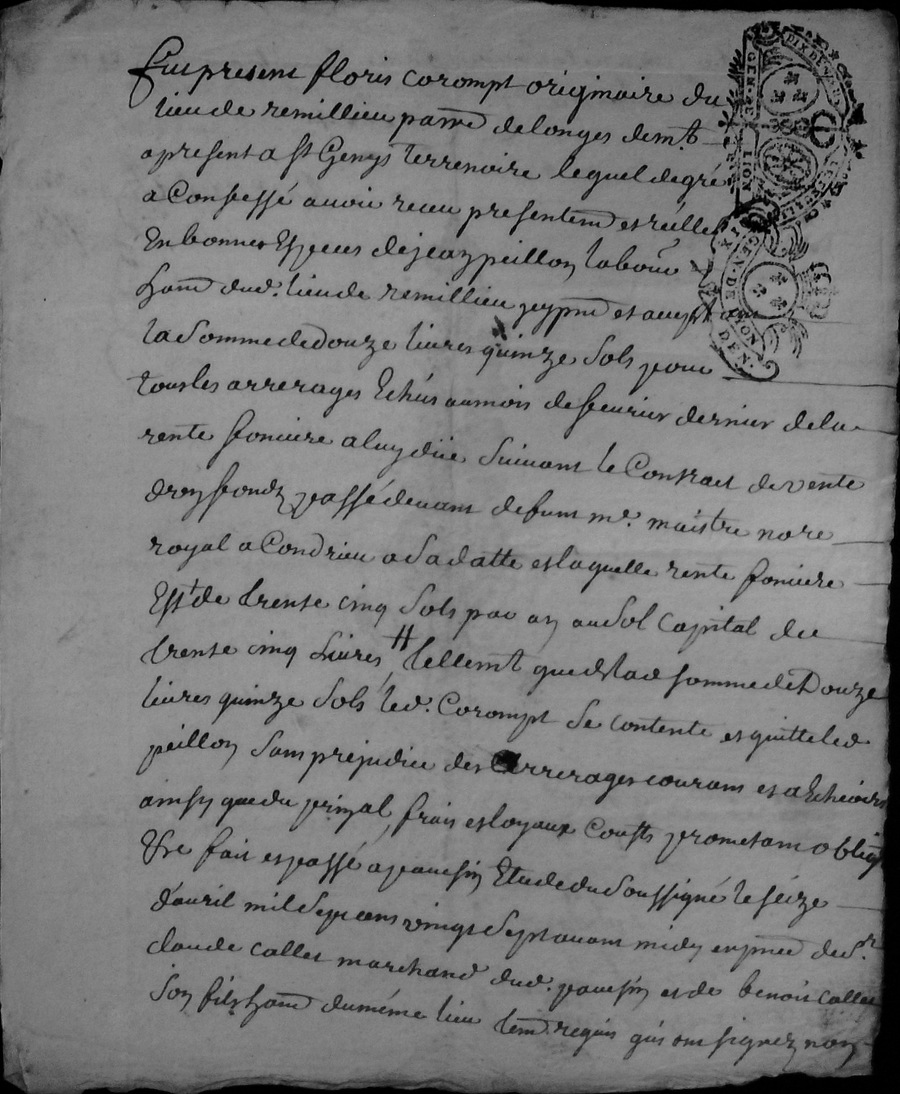 fut present floris corompt originaire du
lieu de remillieu parr.e de longes dem.t
apresent a st Genys terrenoire lequel de gré
a Confessé avoir receu presentem.t et réelle
En bonnes Especes de jean peillon labour
dud. lieu de remillieu pnt et accept.ant
la Somme de Douze livres quinze Sols pour
tous les arrerages Echûs au mois de feuvrier dernier de la
rente fonciere a luy düe Suivant le Contract de vente
d'un fondz passé devant defunt m.e maistre no.re
royal a Condrieu a Sa datte et laquelle rente fonciere
Est de trente cinq Sols par an au Sol Capital de
trente cinq Livres tellem.t que de lad somme de Douze
livres quinze Sols led. Corompt Se contente et quitte led
peillon Sans prejudice des arrerages courans et a Echeoirs
ainsy que du prinpal, frais et loyaux Cousts prometant oblig
fait et passé a pavesin Etude du Soussigné le séize
d'avril mil Sept cens vingt Sept avant midy en pnce de S.r
claude collet marchand dud. pavesin et de benoit collet
Son fils du même lieu tem. requis qui ont signez non
GEN. DE LION
DIX DEN.
GEN. DE LION
DIX DEN.